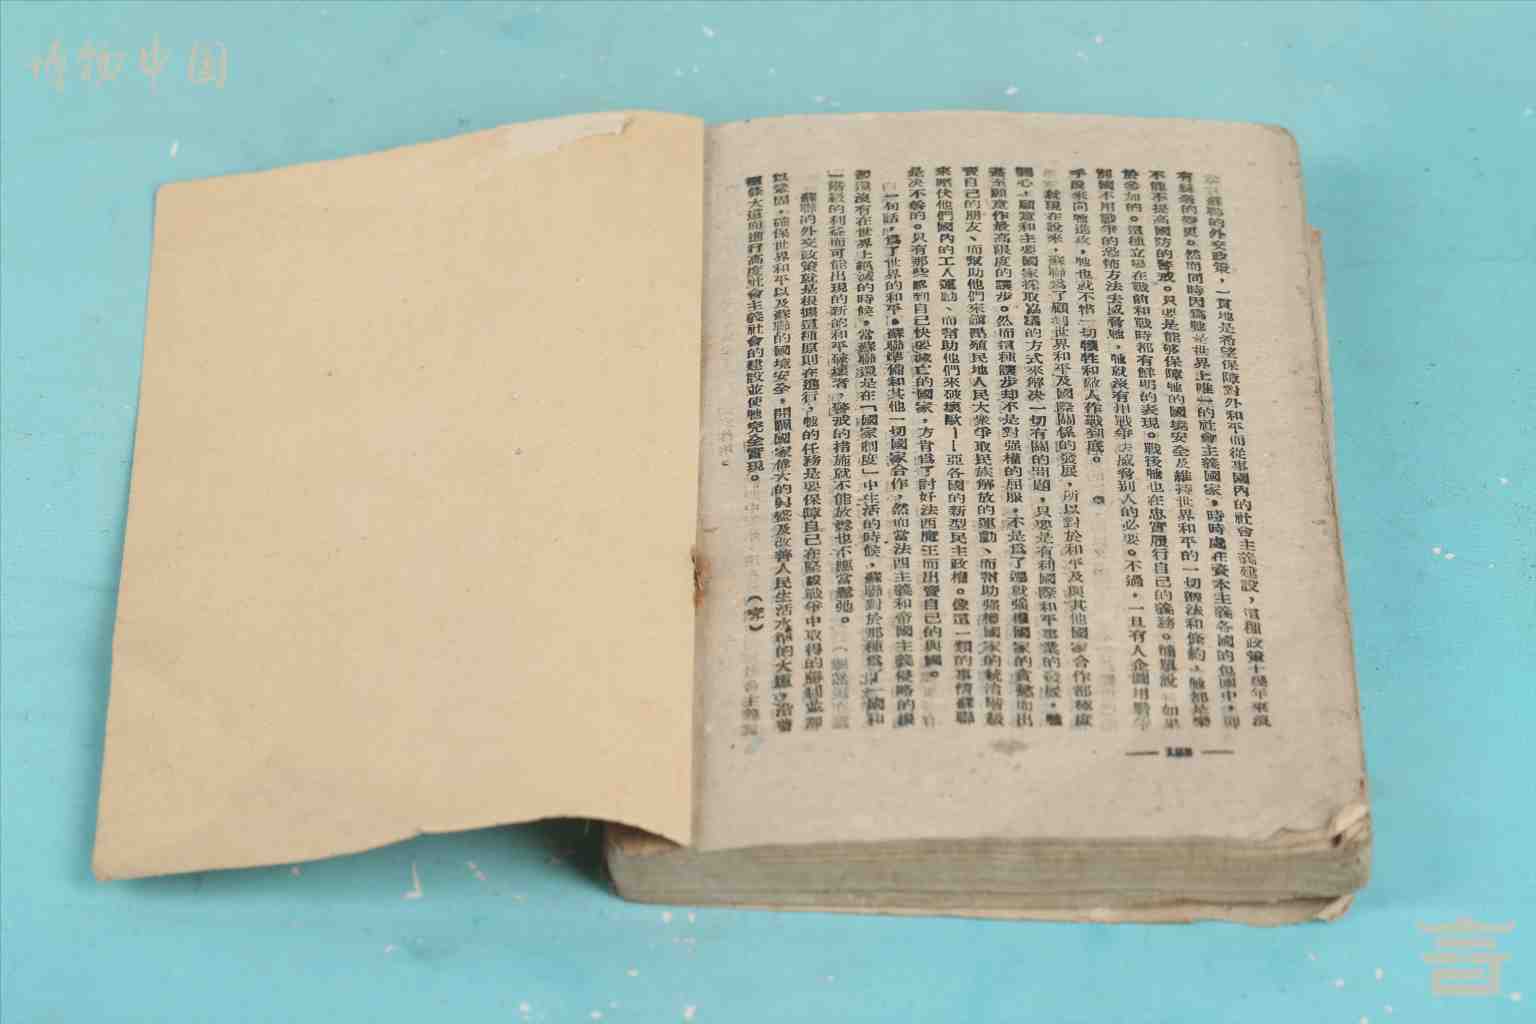 博物中国
蘇聯的外交政策，一貫地是希望保障對外和平而從事國內的社會主義建設，這種政策十幾年來沒
有疑義的變更。然而同時因爲牠是世界上唯一的社會主義國家，時時處在資本主義各國的包圍中，即
不能不提高國防的警戒。只要是能够保障牠的國境安全及維持世界和平的一切辦法和條約，牠都是樂
於參加的。這種立場在戰前和戰時都有鮮明的表現。戰後牠也在忠實履行自己的義務。簡單說 如果
別國不用戰爭的恐怖方法去威脅牠，牠就沒有用戰爭去威脅別人的必要。不過，一旦有人企圖用戰爭
手段來向牠進攻，牠也就不惜一切犧牲和敵人作戰到底。
就現在說來，蘇聯爲了顧到世界和平及國際關係的發展，所以對於和平及與其他國家合作都極度
關心，願意和主要國家採取協議的方式來解決一切有關的問題，只要是有利國際和平事業的發展，牠
甚至願意作最高限度的讓步。然而這種讓步却不是對强權的屈服，不是爲了遷就强權國家的貪慾而出
賣自己的朋友、而幫助他們來鎭壓殖民地人民大衆爭取民族解放的運動、而幫助强權國家的統治階級
來壓伏他們國內的工人運動、而幫助他們來破壞歐——亞各國的新型民主政權。像這一類的事情蘇聯
是決不幹的。只有那些感到自己快要滅亡的國家，方肯爲了討好法西魔王而出賣自己的與國。
一句話，爲了世界的和平，蘇聯準備和其他一切國家合作，然而當法西主義和帝國主義侵略的根
源還沒有在世界上絕滅的時候，當蘇聯還是在「國家制度」中生活的時候，蘇聯對於那種爲了一國和
一階級的利益而可能出現的新的和平破壞者，警戒的措施就不能放鬆也不應當鬆弛。
蘇聯的外交政策就是根據這種原則在進行，牠的任務是要保障自己在堅毅戰爭中取得的勝利並鄰
以鞏固，確保世界和平以及蘇聯的國境安全，開闢國家偉大的興盛及改善人民生活水準的大道，沿着
這條大道而進行高度社會主義社會的建設並使牠完全實現。
（完）